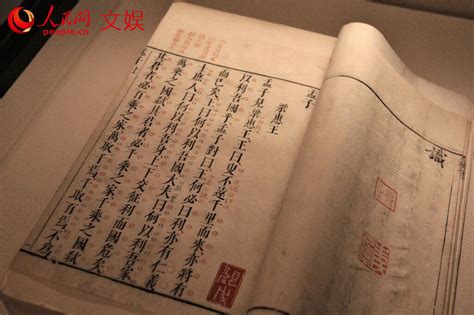 人民网·文娱
people.cn
識
孟子
梁惠王
孟子見梁惠王王曰叟不遠千里而來亦將有
以利吾國乎孟子對曰王何必曰利亦有仁義
而已矣王曰何以利吾國大夫曰何以利吾家
士庶人曰何以利吾身上下交征利而國危矣
萬乘之國弒其君者必千乘之家千乘之國弒
其君者必百乘之家萬取千焉千取百焉不爲